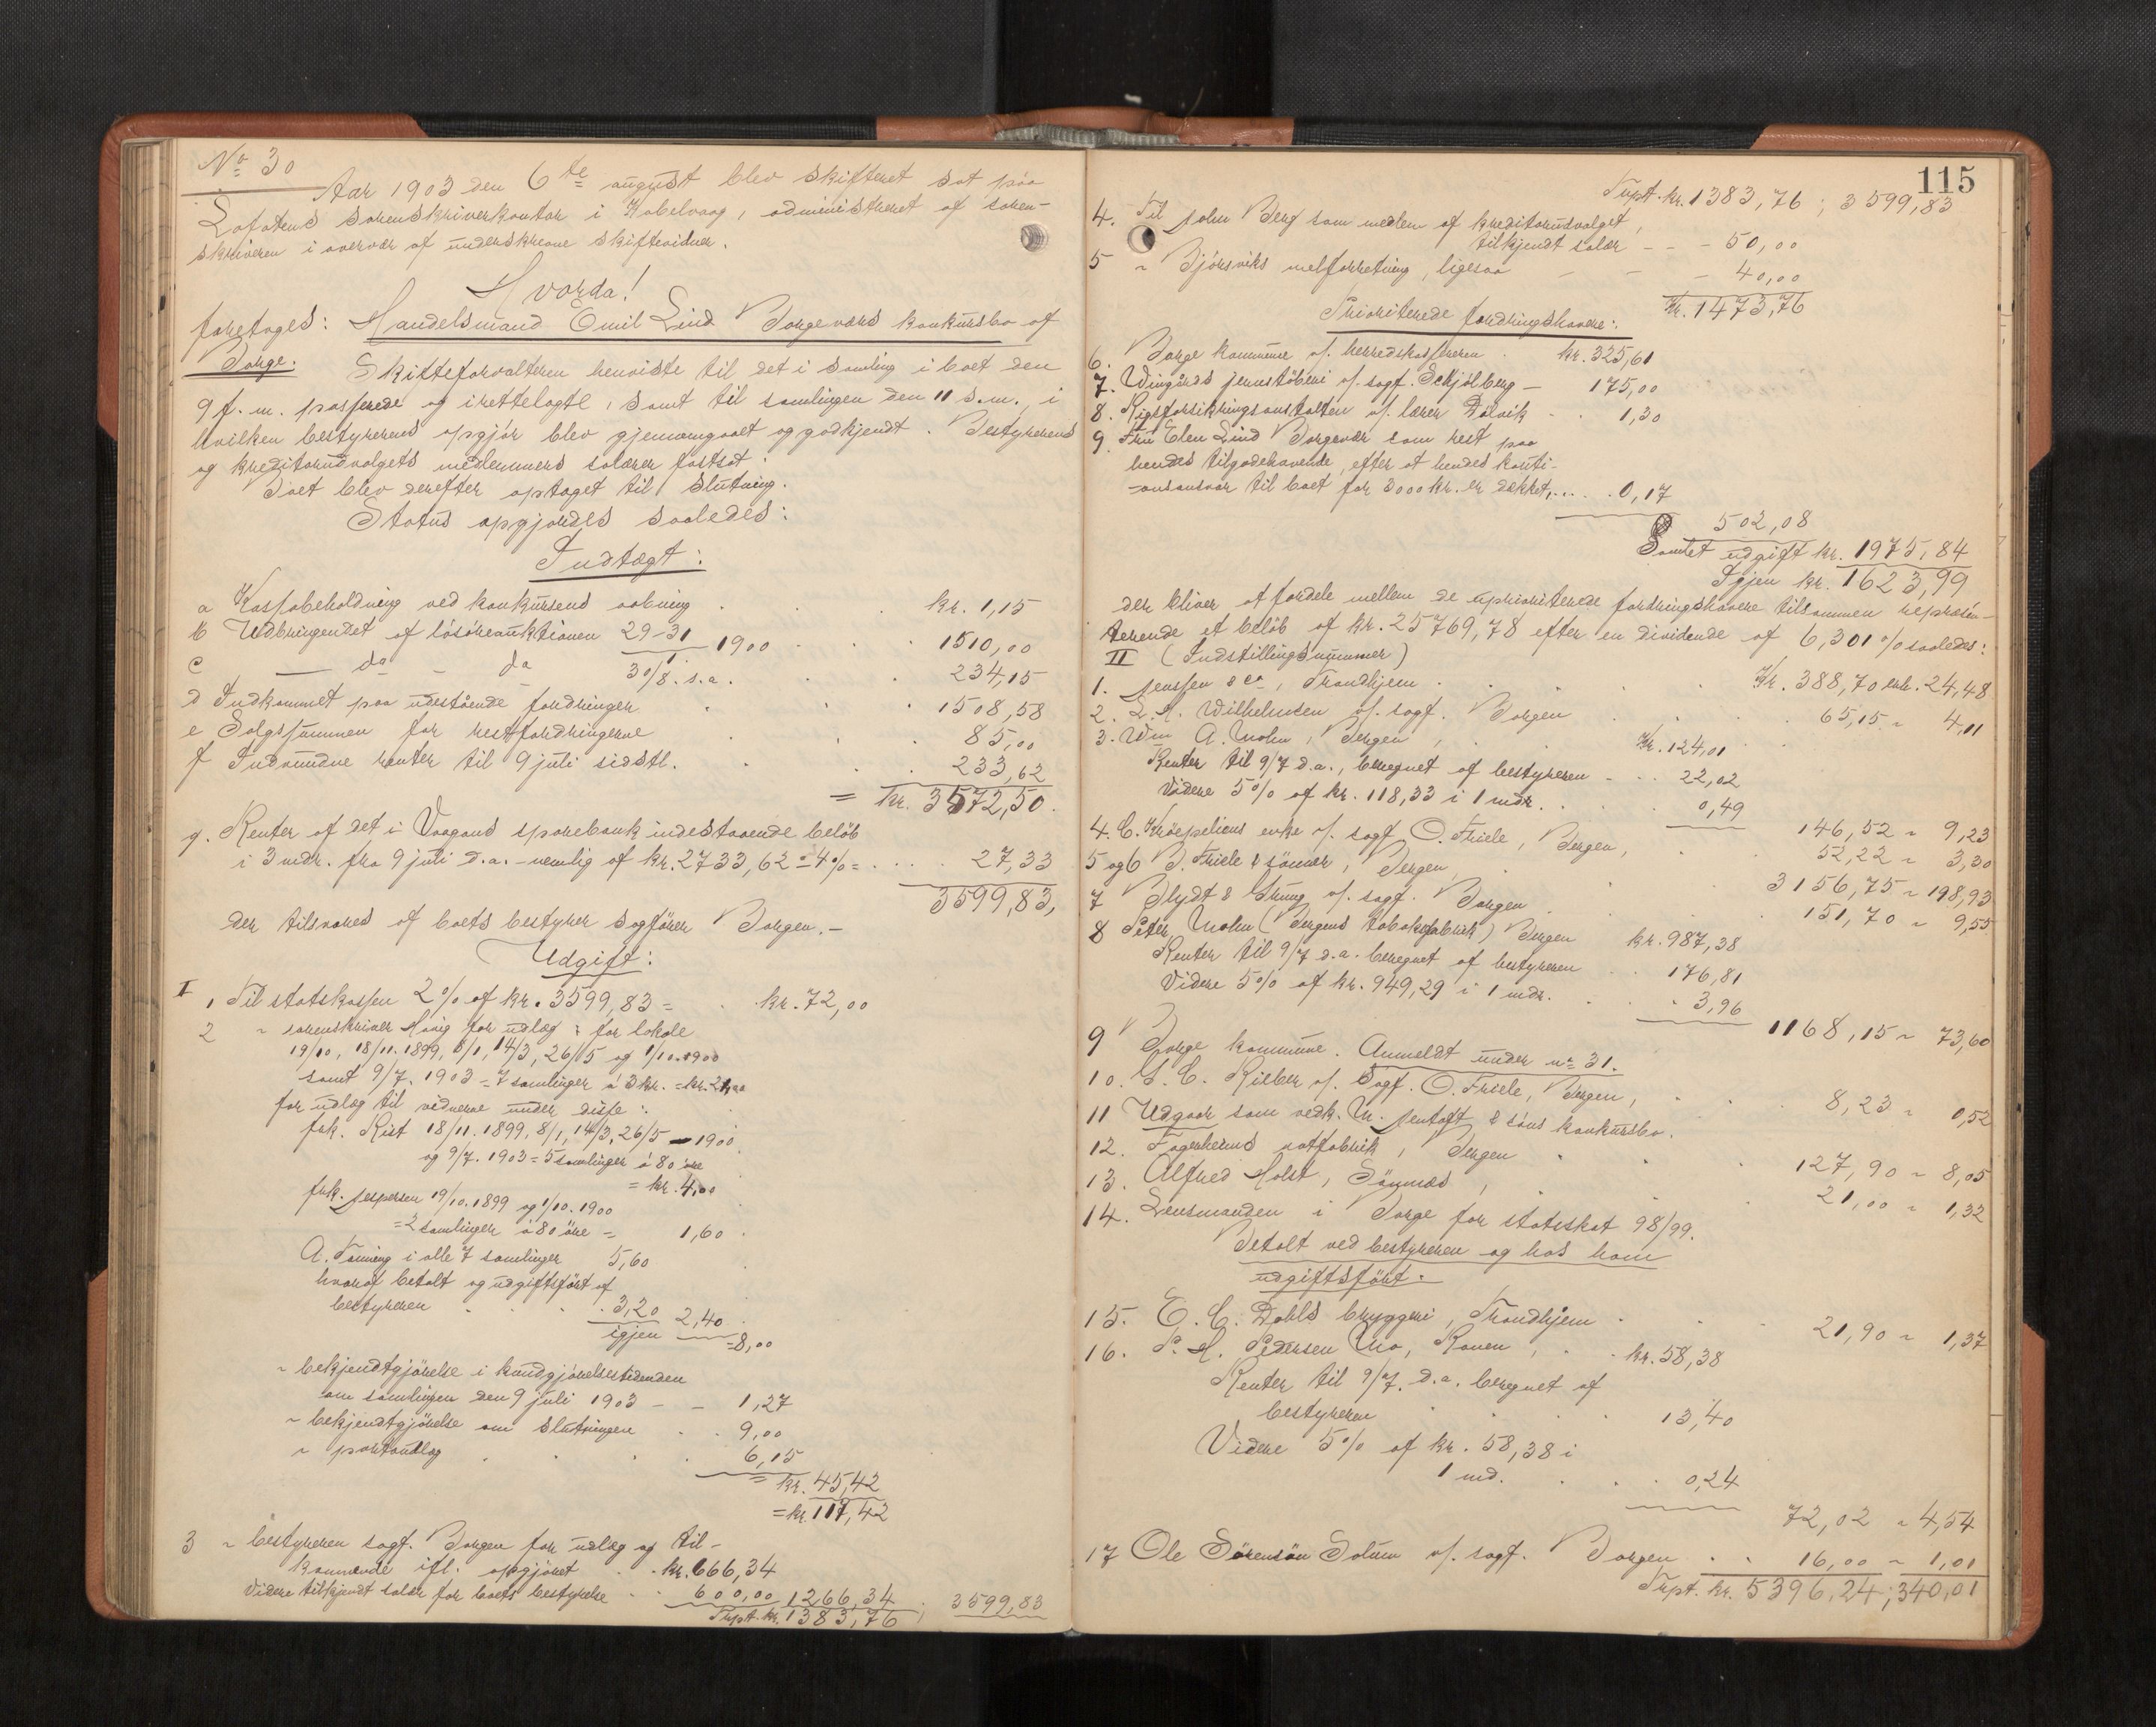 No 30
Aar 1903 den 6te august blev skifteret sat paa
Lofotens sorenskriverkontor i Kabelvaag, administreret af soren-
skriveren i overvær af underskrevne skiftevidner.
Hvorda!
foretoges: Handelsmand Emil Lind Borgeværs konkursbo af
Borge. Skifteforvalteren henviste til det i samling i boet den
9 f. m. passerede og irettelagte, samt til samlingen den 11 s.m., i
hvilken bestyrerens opgjör blev gjennemgaaet og godkjendt. Bestyrerens
og kreditorudvalgets medlemmers salærer fastsat.
Boet blev derefter optaget til slutning.
Status opgjordes saaledes:
Indtægt:
a Kassabeholdning ved konkursens aabning . . . kr. 1,15
b Udbringendet af lösöreauktionen 29-31/1 1900 . . 1510,00
c — do — do 30/8. s.a. . . 234,15
d Indkommet paa udestående fordringer . . 1508,58
e Salgssummen for restfordringerne . . 85,00
f Indvundne renter til 9 juli sidstl. . . 233,62
= kr. 3572,50.
g. Renter af det i Vaagans sparebank indestaaende belöb
i 3 mdr. fra 9 juli d.a. - nemlig af kr. 2733,62 = 4% = . . . . 27,33
3599,83,
der tilsvares af boets bestyrer sagförer Borgen.-
Udgift:
I 1 Til statskassen 2% af kr. 3599,83 = . kr. 72,00
2 " sorenskriver Hvig for udlæg: for lokale
19/10, 18/11. 1899, 8/1, 14/3, 26/5 og 1/10. 1900
samt 9/7. 1903 = 7 samlinger à 3 kr. = kr. 21,00
for udlæg til vidnerne under disse:
frk. Rist 18/11. 1899, 8/1, 14/3, 26/5 - 1900
og 9/7. 1903 = 5 samlinger à 80 öre
= kr. 4,00
frk. Jespersen 19/10. 1899 og 1/10. 1900
= 2 samlinger à 80 öre = 1,60
A. Tönning i alle 7 samlinger 5,60
hvoraf betalt og udgiftsfört af
bestyreren . . . . 3,20 2,40
igjen = 8,00
" bekjendtgjörelse i kundgjörelsestidenden
om samlingen den 9 juli 1903 - - 1,27
" bekjendtgjörelse om slutningen . . 9,00
" portoudlæg . . . . 6,15
= kr. 45,42
= kr. 117,42
3 " bestyreren sagf. Borgen for udlæg og til-
kommende ifl. opgjöret . . kr. 666,34
Videre tilkjendt salær for boets bestyrelse . . 600,00 1266,34
Trpt. kr. 1383,76; 3599,83
115
Trpt. kr. 1383,76; 3599,83
4. Til John Berg som medlem af kreditorudvalget,
tilkjendt salær - - - 50,00
5 " Björsviks melforretning, ligesaa - - - 40,00
Kr. 1473,76
Prioriterede fordringshavere:
6. Borge kommune v/. herredskassereren . kr. 325,61
7. Wingårds jernstöberi v/. sagf. Schjölberg - 175,00
8. Rigsforsikringsanstalten v/. lærer Dalvik . . 1,30
9 Fru Elen Lind Borgevær som rest paa
hendes tilgodehavende, efter at hendes kauti-
onsansvar til boet for 3000 kr. er dækket, . . . . 0,17
502,08
Samlet udgift kr. 1975,84
Igjen kr. 1623,99
der bliver at fordele mellem de uprioriterede fordringshavere tilsammen repræsen-
terende et belöb af kr. 25769,78 efter en dividende af 6,301% saaledes:
II (Indstillingsnummer)
1. Jenssen & Co, Trondhjem . . . . Kr. 388,70 erh. 24,48
2. L. A. Wilhelmsen v/. sagf. Borgen . . . 65,15 " 4,11
3. Wm A. Mohn, Bergen, . . Kr. 124,01
Renter til 9/7 d.a., beregnet af bestyreren - . . 22,02
Videre 5% af kr. 118,33 i 1 mdr. . . 0,49
146,52 " 9,23
4. C. Kröepeliens enke v/. sagf. O. Friele, Bergen, . . 52,22 " 3,30
5 og 6 B. Friele & sönner, Bergen . . 3156,75 " 198,93
7 Blydt & Strung v/. sagf. Borgen . . 151,70 " 9,55
8 Peter Mohn (Bergens tobaksfabrik) Bergen kr. 987,38
Renter til 9/7 d.a. beregnet af bestyreren . . 176,81
Videre 5% af kr. 949,29 i 1 mdr. . . 3,96
1168,15 " 73,60
9 Borge kommune. Anmeldt under no 31.
10. G. C. Rieber v/. Sagf. O. Friele, Bergen, . . . 8,23 " 0,52
11 Udgaar som vedk. M. Jentoft & söns konkursbo.
12. Fagerheims notfabrik, Bergen . . . 127,90 " 8,05
13. Alfred Holst, Sörnæs, . . . 21,00 " 1,32
14. Lensmanden i Borge for statsskat 98/99.
Betalt ved bestyreren og hos ham
udgiftsfört.
15. E. C. Dahls bryggeri, Trondhjem . . . 21,90 " 1,37
16. P. H. Pedersen Mo, Ranen, . . kr. 58,38
Renter til 9/7. d.a. beregnet af
bestyreren . . . . 13,40
Videre 5% af kr. 58,38 i
1 md. . . . 0,24
72,02 " 4,54
17 Ole Sörensön Solum v/. sagf. Borgen . . 16,00 " 1,01
Trpt. kr. 5396,24; 340,01